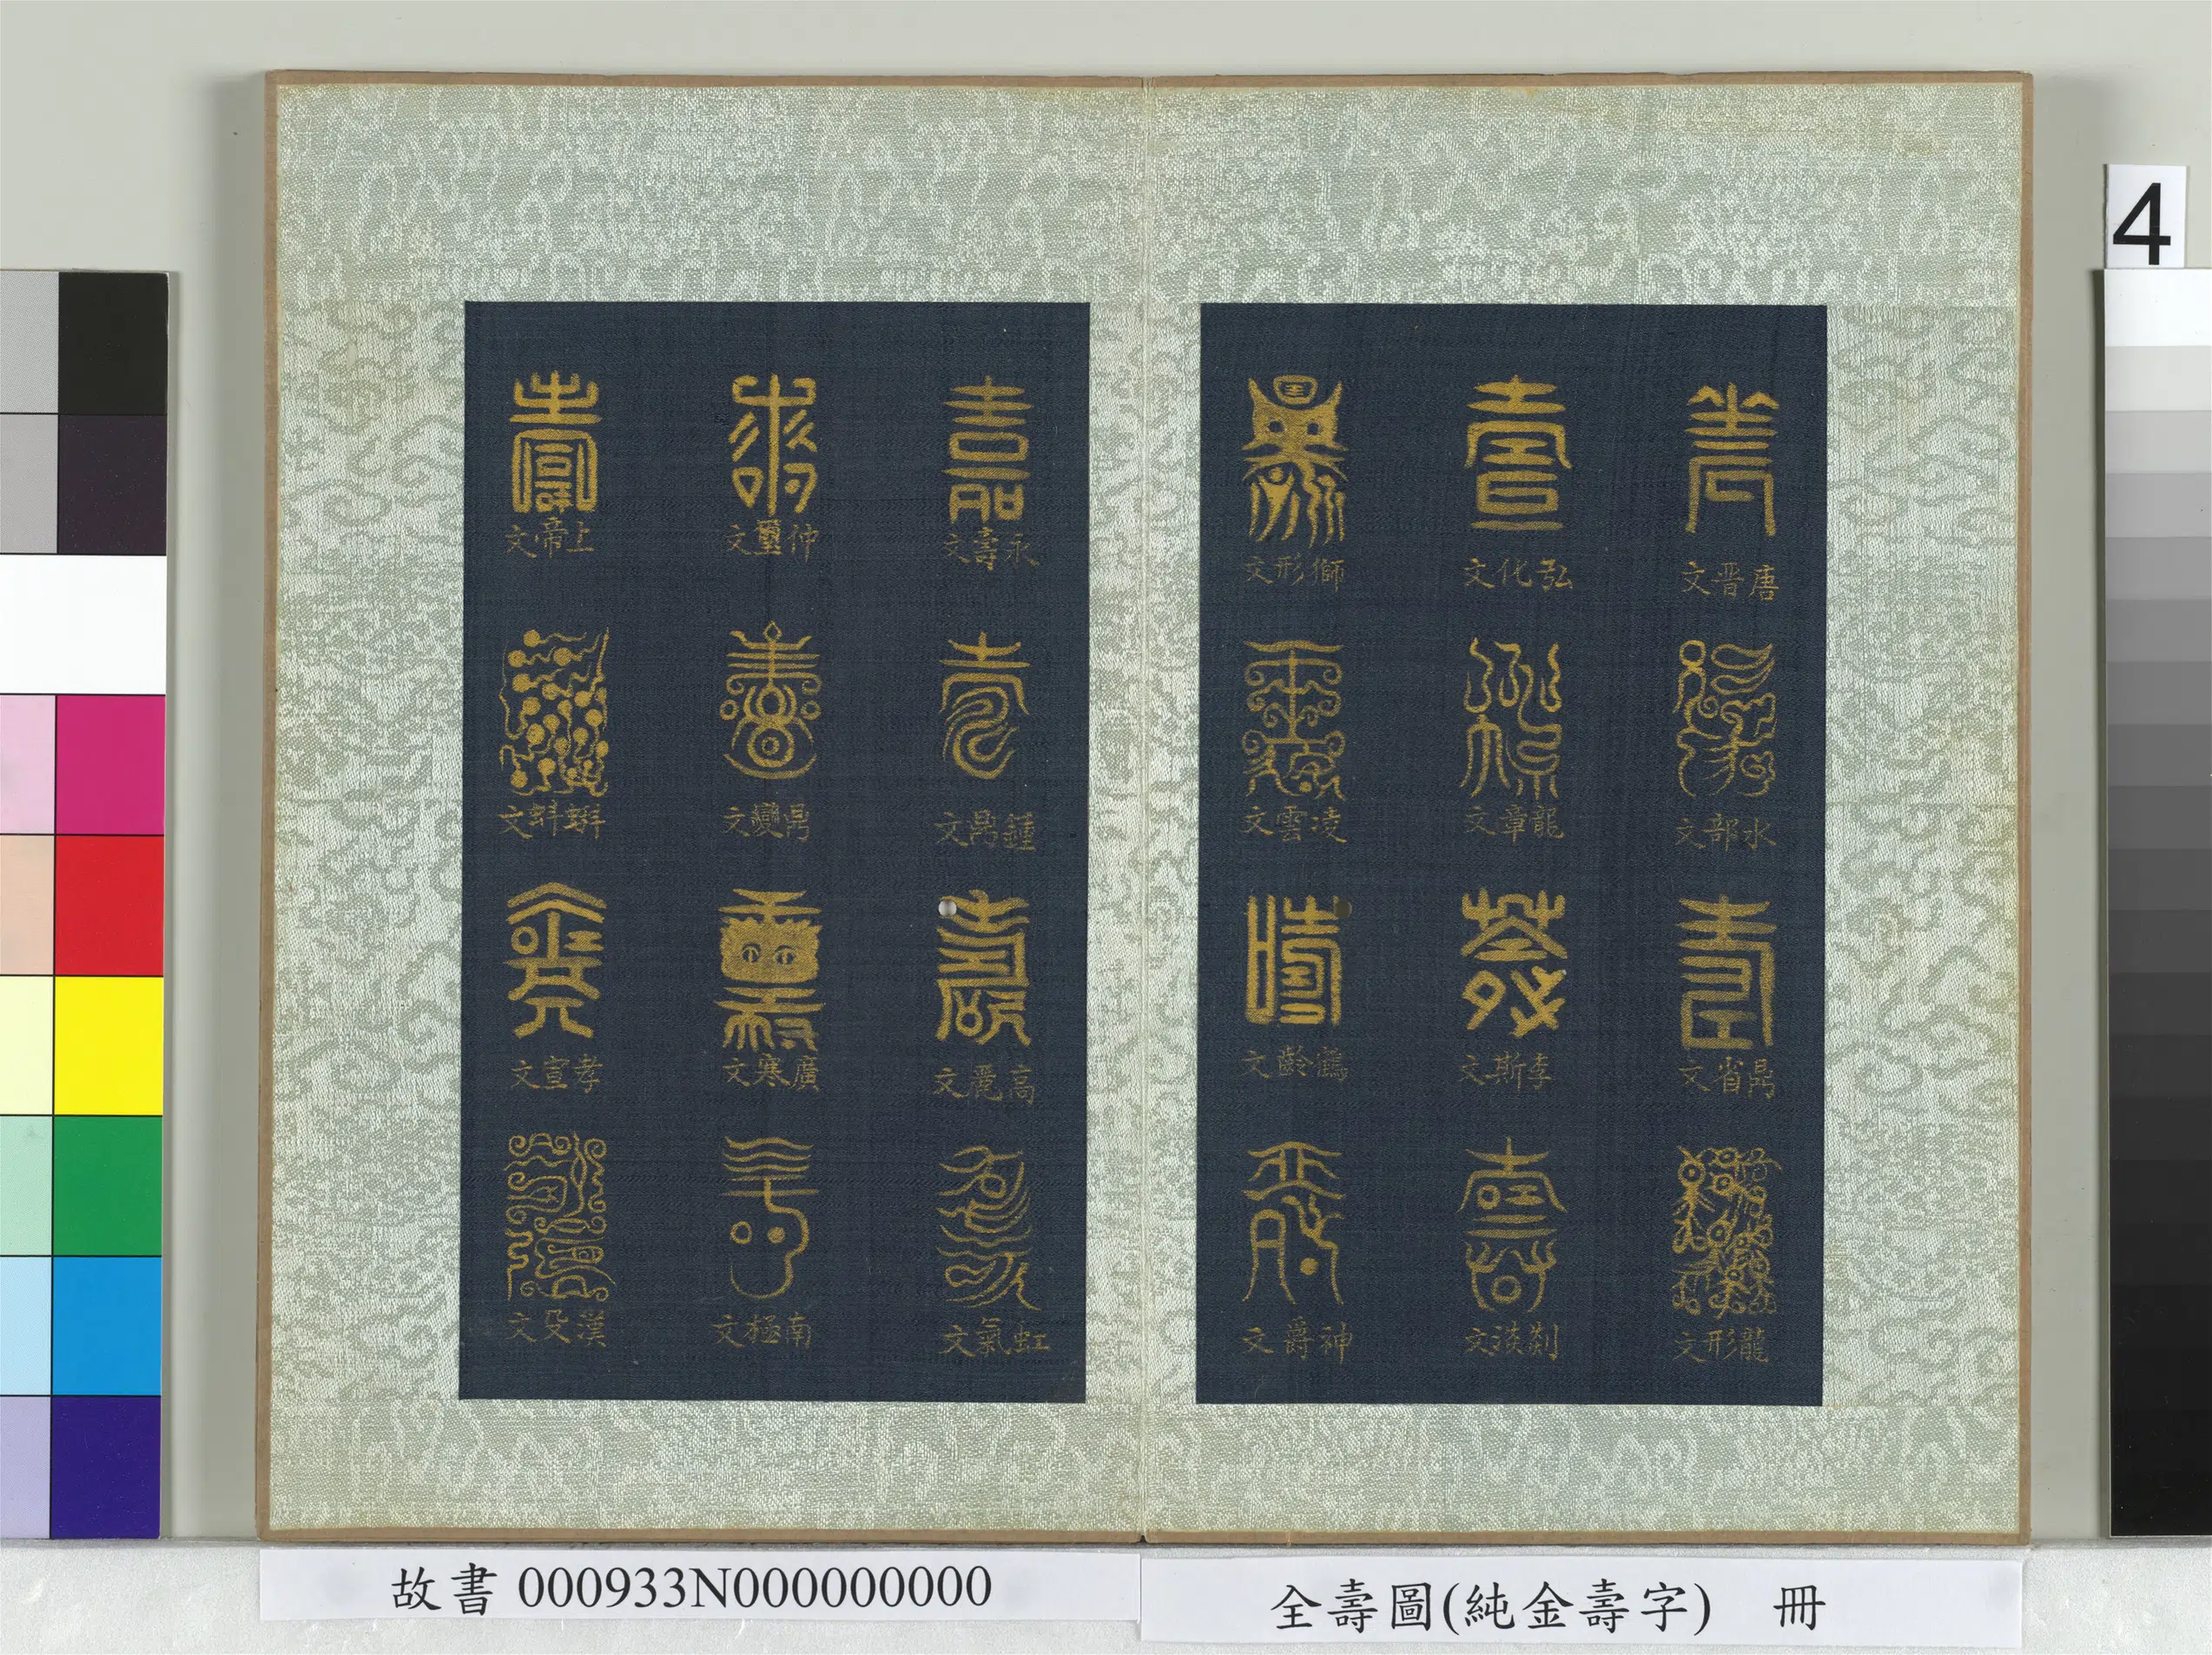 4
唐晋文
水部文
鼎省文
龍形文
弘化文
龍章文
李斯文
剡淡文
獅形文
凌雲文
鶴齡文
神爵文
永壽文
鍾鼎文
高麗文
虹氣文
仲璽文
鼎變文
廣寒文
南極文
上帝文
蝌蚪文
孝宣文
漢殳文
故書 000933N000000000
全壽圖(純金壽字) 冊